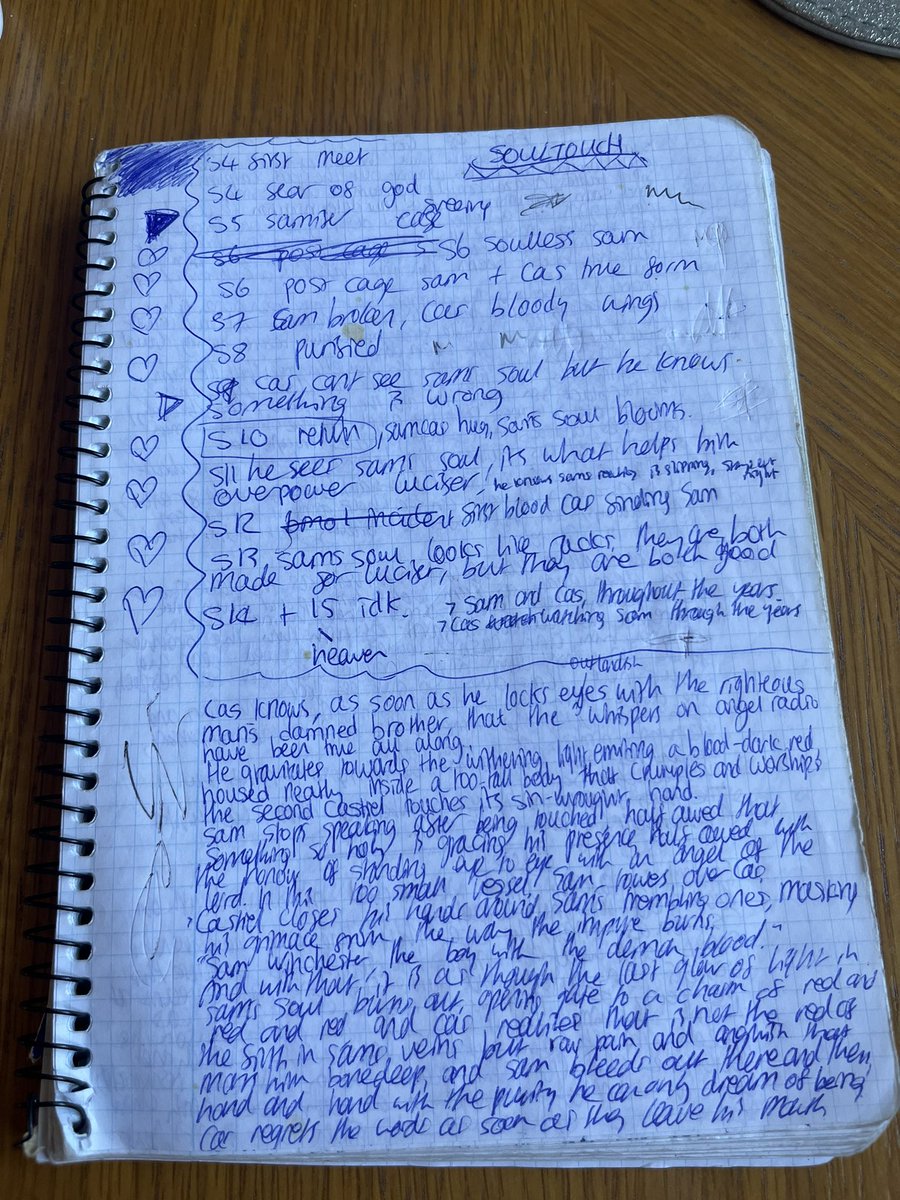 SOULTOUCH
S4 first meet
S4 fear of god
S5 samifer cage
S6 post cage S6 soulless sam
S6 post cage sam + cas true form
S7 Sam broken, cas bloody wings
S8 purified
cas cant see sams soul but he knows
something is wrong
S10 return, samcas hug, sams soul blooms.
S11 he sees sams soul, its what helps him
overpower lucifer, he knows sams reality is slipping,
S12 first blood cas finding sam
S13 sams soul looks like jacks. they are both
made for lucifer, but they are both good
S14 + 15 idk. → Sam and Cas, throughout the years
→ Cas watching sam through the years
heaven
outlandish
Cas knows, as soon as he locks eyes with the righteous
man's damned brother, that the whispers on angel radio
have been true all along.
He gravitates towards the withering light, emitting a blood-dark red
housed neatly inside a too-tall body that crumples and worships
the second Castiel touches its sin-wrought hand.
Sam stops speaking after being touched, half awed that
something so holy is gracing his presence half awed with
the honour of standing eye to eye with an angel of the
lord. In this too small vessel, Sam towers over Cas.
Castiel closes his hands around Sams trembling ones, masking
his grimace from the way the impure burns.
"Sam Winchester, the boy with the demon blood."
And with that, it is as though the last glow of light in
Sams soul burns out, opening gate to a chasm of red and
red and red and Cas realises that is not the red of
the filth in sams veins but raw pain and anguish that
mars him bonedeep, and Sam bleeds out there and then,
hand and hand with the purity he can only dream of being
Cas regrets the words as soon as they leave his mouth